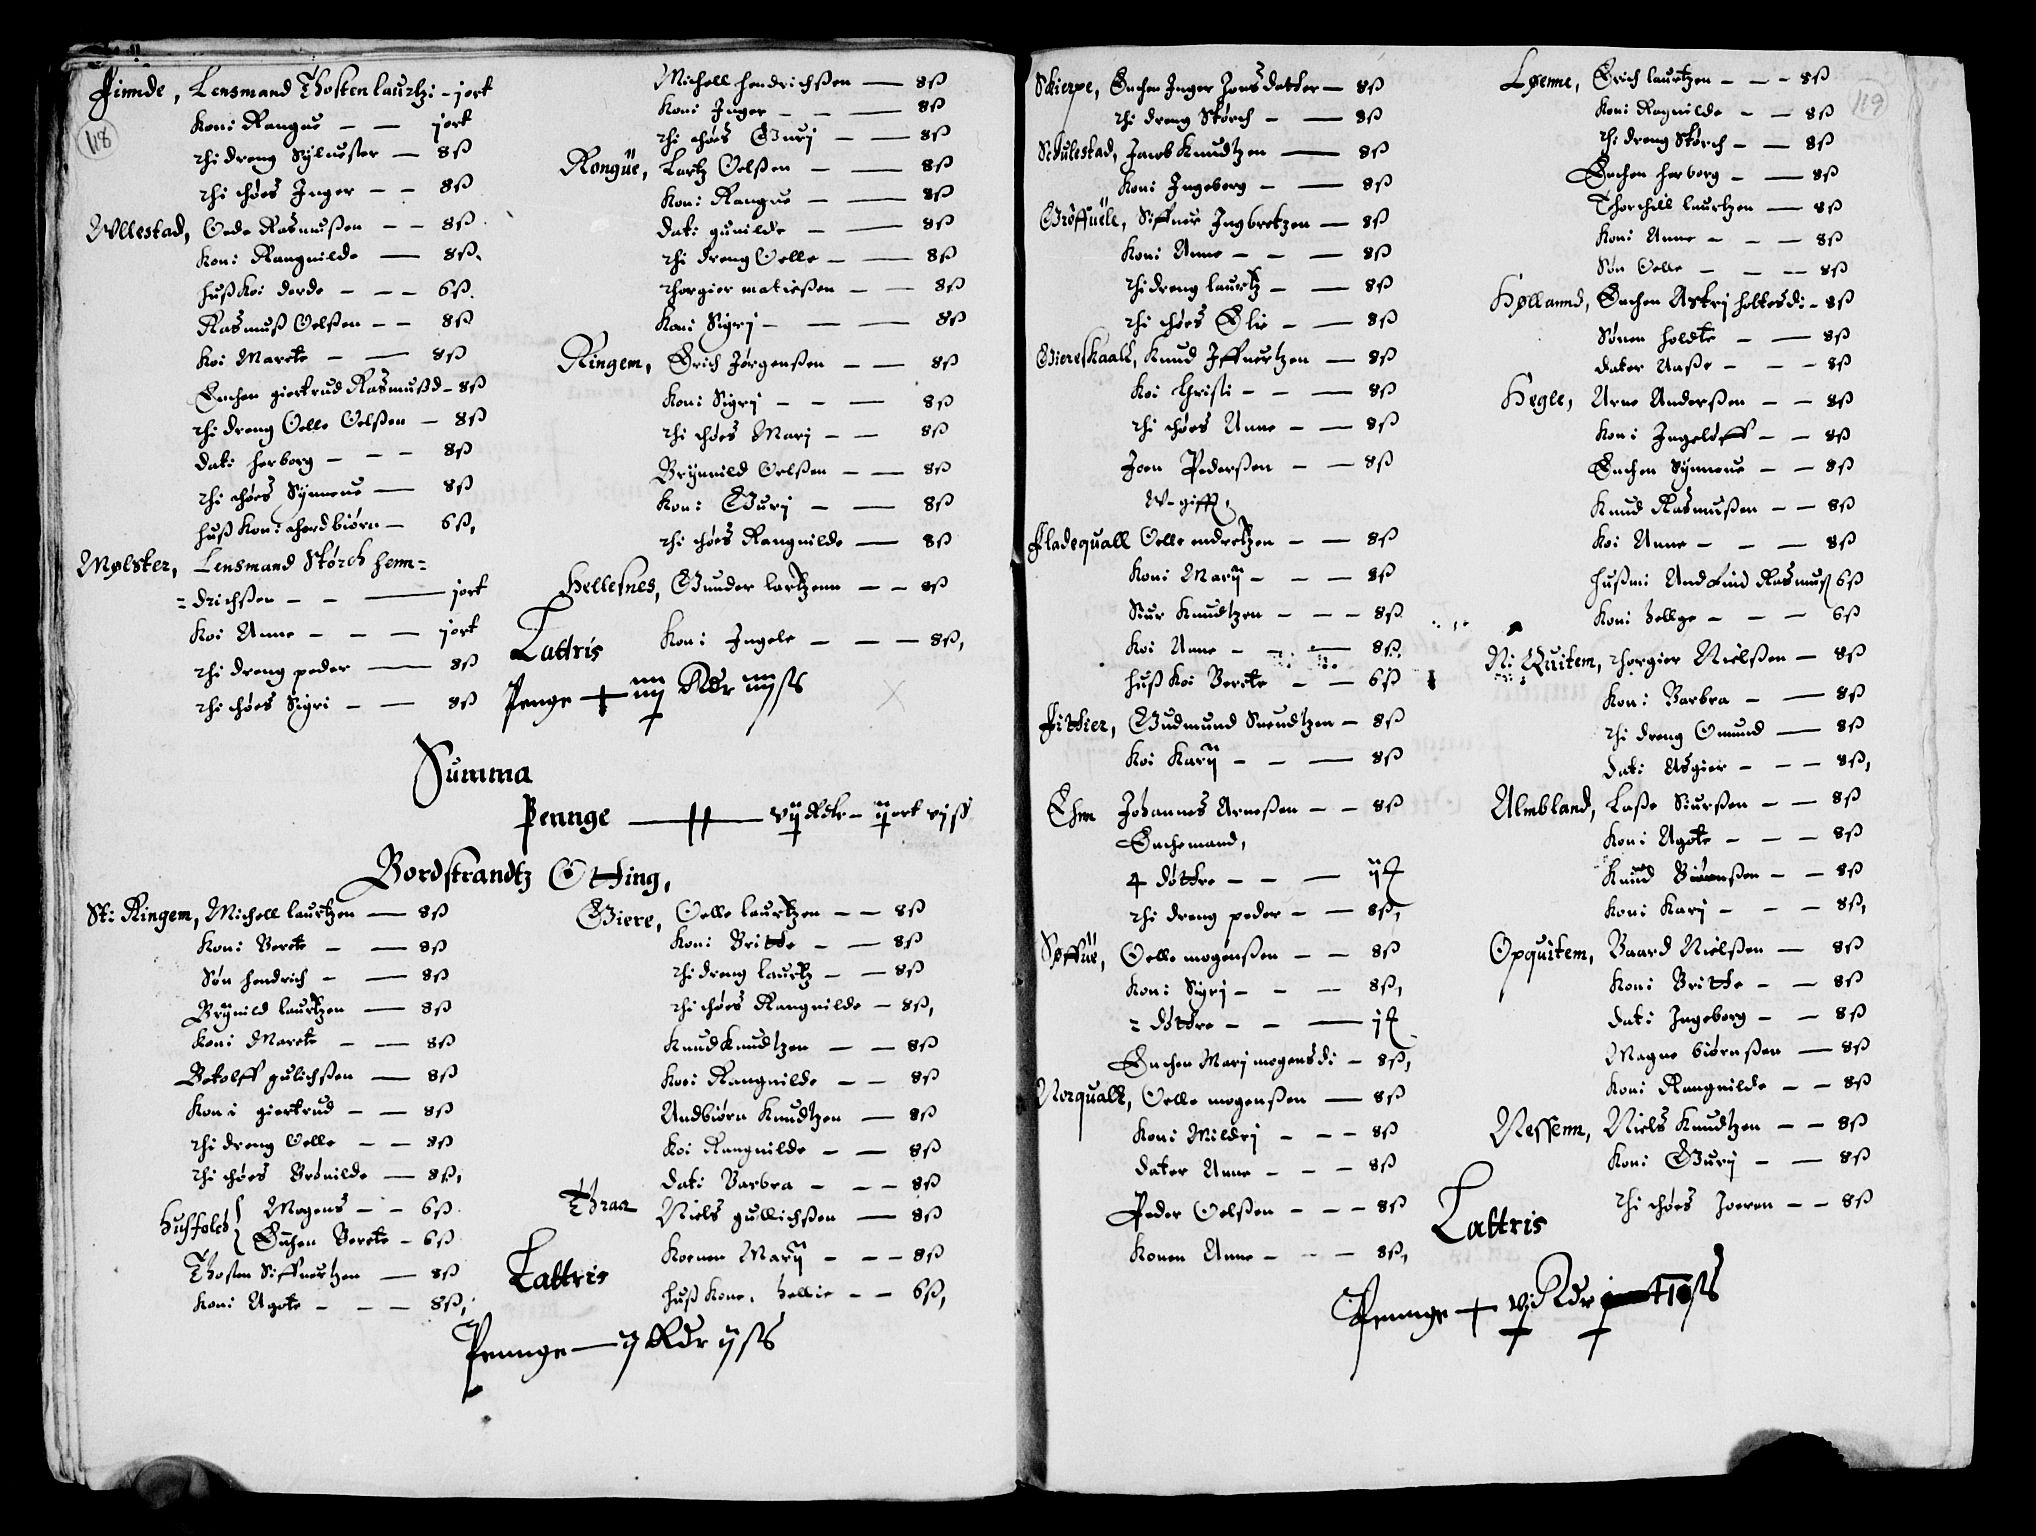 118
Finnde, Lensmand Thosten laurtz: - j ort
Koni Rangne - - j ort
thi dreng Syluester - 8 ß
thi thøes Inger - - 8 ß
Wllestad, Oede Rasmußen - - 8 ß
Koni Rangnilde - 8 ß
huß Koi dorde - - - 6 ß
Rasmuß Oelßen - - 8 ß
Koi Marete - - 8 ß
Enchen giertrud Rasmußd - 8 ß
thi dreng Oelle Oelßen - 8 ß
dat: herborg - - - 8 ß
thi thøes Synneue - 8 ß
huß Kon: thordbiørn - 6 ß,
Mølster, Lensmand Størch henn=
=drichßen - - - j ort
Koi Anne - - - j ort
thi dreng peder - 8 ß
thi thøes Sigri - - 8 ß
Michell hendrichßen - 8 ß
Koni Inger - - - 8 ß
thi thøes Gurj - - 8 ß
Rongüe, Lartz Oelßen - - 8 ß
Kon: Rangne - - 8 ß
dat: gunilde - - 8 ß
thi dreng Oelle - - 8 ß
thorgier matießen - - 8 ß
Koni Sigrj - - - 8 ß
Ringem, Erich Jørgenßen - - 8 ß
Koni Sigrj - - - 8 ß
thi thøes Marj - - 8 ß
Brynnild Oelßen - - 8 ß
Kon: Gurj - - 8 ß
thi thøes Rangnilde - 8 ß
Hellesnes, Gunder lartzenn - - 8 ß
Kon: Ingele - - - 8 ß,
Lattris
Penge + iiij Rdr iiij ß
Summa
Pennge - vij Rdr - ij ort vj ß
Bordstrandtz Otting,
St: Ringem, Michell laurtzen - 8 ß
Kon: Berete - - 8 ß
Søn hendrich - - 8 ß
Brynild laurtzen - 8 ß
Koni Marete - - 8 ß
Botolff gulichßen - 8 ß
Koni giertrud - - 8 ß
thi dreng Oelle - - 8 ß
thi thøes Brønilde - 8 ß,
hußfolch { Mogens - - 6 ß
Enchen Berete - 6 ß
Thosten Siffuertzen - 8 ß
Koni Agote - - - 8 ß,
Giere, Oelle laurtzen - - 8 ß
Koni Britthe - - 8 ß
thi dreng laurtz - - 8 ß
thi thøes Rangnilde - 8 ß,
Knud Knudtzen - - 8 ß
Koni Rangnilde - - 8 ß
Andbiørn Knudtzen - 8 ß
Koi Rangnilde - - 8 ß
dat: Barbra - - - 8 ß
Thraa Niels gullichßen - 8 ß
Koenen Marÿ - - - 8 ß
huß Kone, hellie - - 6 ß,
Lattris
Pennge - ij Rdr ij ß
119
Skierpe, Enchen Inger Jonsdatter - 8 ß
thi dreng Størch - - 8 ß
Schulestad, Jacob Knudtzen - 8 ß
Koni Ingeborg - - 8 ß
Grøffuele, Siffuer Ingbretzen - 8 ß
Koni Anne - - - 8 ß
thi dreng laurtz - - 8 ß
thi thøes Elie - - 8 ß
Giereskaall, Knud Iffuertzen - 8 ß
Koi Christi - - - 8 ß
thi thøes Anne - - 8 ß
Joen Pederßen - - 8 ß
W-gifft,
Fladequall Oelle endretzen - - 8 ß
Koni Marÿ - - - 8 ß
Siur Knudtzen - - - 8 ß
Koi Anne - - - 8 ß
huß Koi Berete - - 6 ß
Fittier, Gudmund Sneudtzen - 8 ß
Koi Karÿ - - - 8 ß
Ehm Johannes Arneßen - - 8 ß
Enchemand,
4 døttre - - - ij
thi dreng peder - - 8 ß,
Søffüe, Oelle mogenßen - - 8 ß
Koni Sigrj - - - 8 ß,
= døttre - - - j
Enchen Marj mogensdi - 8 ß,
Norquall, Oelle mogenßen - 8 ß
Koni Mildrj - - - 8 ß
dater Anne - - - 8 ß
Peder Oelßen - - - 8 ß
Konen Anne - - - 8 ß,
Løenne, Erich laurtzen - - - 8 ß
Koni Ragnilde - - 8 ß
thi dreng Størch - - 8 ß
Enchen herborg - - 8 ß
Thorchill laurtzen - 8 ß
Koni Anne - - - 8 ß
Søn Oelle - - - 8 ß
Høllannd, Enchen Askrj holtesdi - 8 ß
Sønen holdte - - 8 ß
dater Aaße - - - 8 ß
Hegle, Arne Anderßen - - 8 ß
Koni Ingeløff - - 8 ß
Enchen Synneue - - 8 ß
Knud Rasmußen - - 8 ß
Koi Anne - - - 8 ß
hußmi Andfind Rasmuß 6 ß
Koni hellge - - - 6 ß
N: Quitem, thorgier Nielßen - 8 ß
Kon: Barbra - - 8 ß
thi dreng Omund - 8 ß
dat: Asgier - - - 8 ß,
Almbland, Laße Siurßen - - 8 ß
Koni Agote - - - 8 ß
Knud Biørnßen - - 8 ß
Koni Karj - - - 8 ß,
Opquitem, Baard Nielßen - - 8 ß
Koni Britthe - - 8 ß
dat: Ingeborg - - 8 ß
Magne biørnßen - 8 ß
Koni Rangnilde - - 8 ß
Nessenn, Niels Knudtzen - - 8 ß
Koni Gurj - - 8 ß
thi thøes Joeren - - 8 ß
Lattris
Pennge + vj Rdr 10 ß